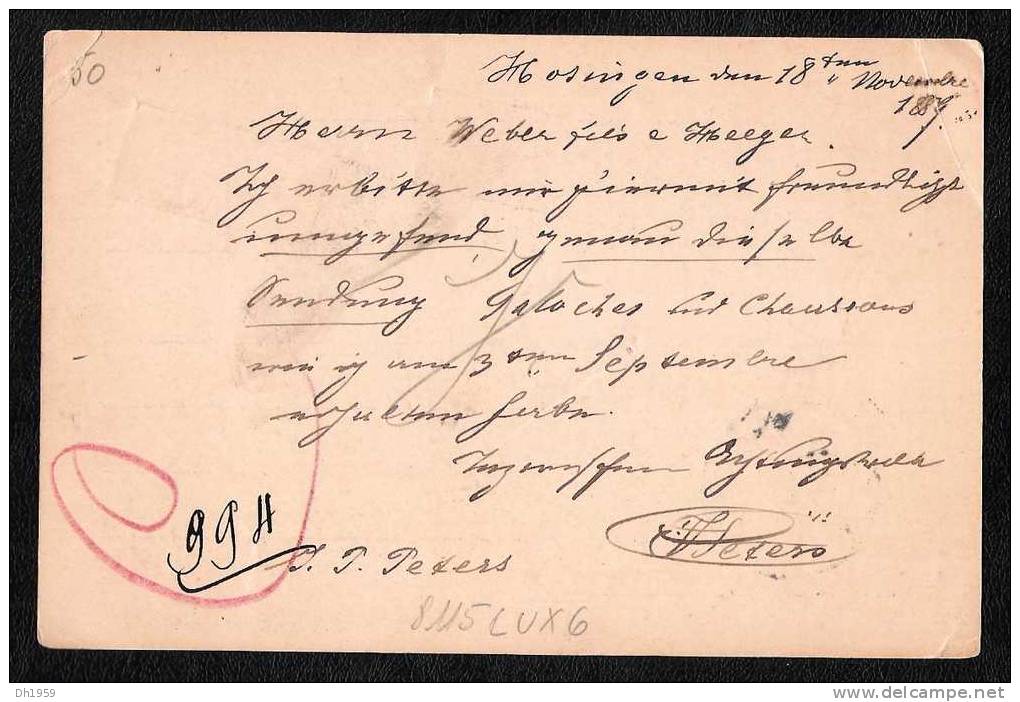 50
Hosingen den 18ten Novembre
188
Herrn Weber fils
Ich erbitte mir hiermit freundlichst
umgehend, genau dieselbe
Sendung Galoches und Chaussons
wie ich am 3ten Septembre
erhalten habe.
Inzwischen Achtungsvoll
J P Peters
994
J. P. Peters
8115 LUX6
Dh1959
www.delcampe.net